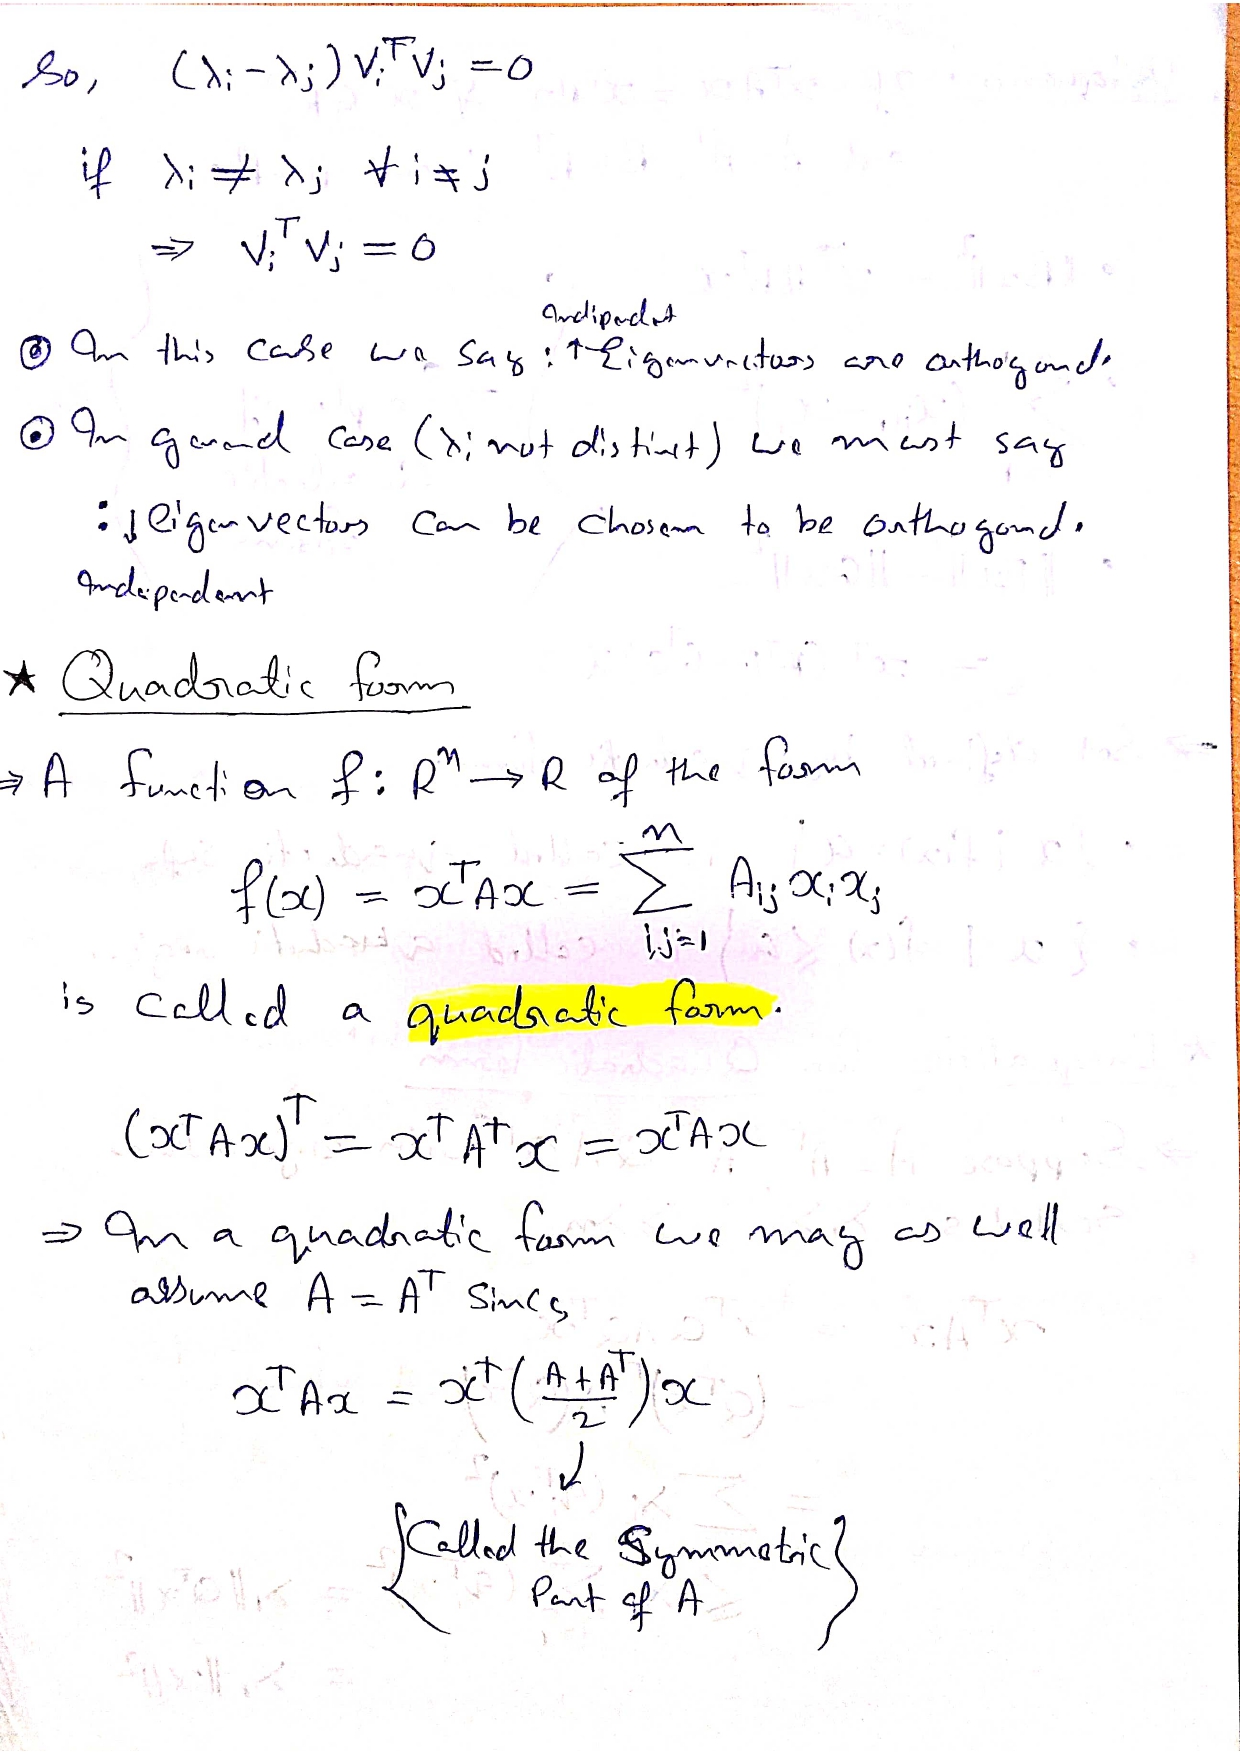 So, (λi - λj) Vi^T Vj = 0
if λi ≠ λj ∀ i ≠ j
⇒ Vi^T Vj = 0
Indipedet
⊙ In this case we say : ↑ Eigenvectors are orthogonal.
⊙ In general case (λi not distinct) we must say
: ↓ eigenvectors can be chosen to be orthogonal.
Independent
★ Quadratic form
⇒ A function f : R^n → R of the form
f(x) = x^T A x = ∑_{i,j=1}^{n} Aij xi xj
is called a quadratic form.
(x^T A x)^T = x^T A^T x = x^T A x
⇒ In a quadratic form we may as well
assume A = A^T since,
x^T A x = x^T ( (A + A^T)/2 ) x
↓
{Called the Symmetric
Part of A}